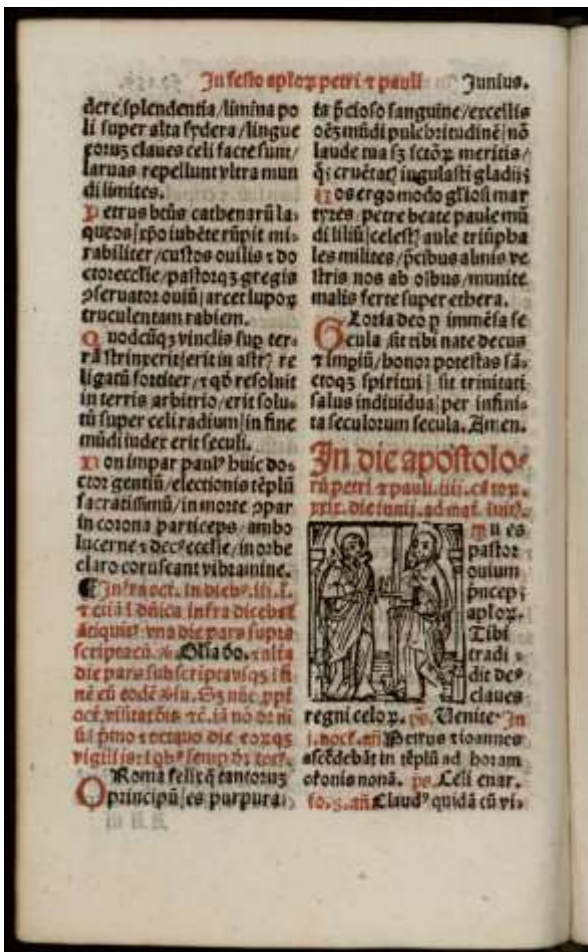 In festo aploꝝ petri ⁊ pauli Junius.
dere splendentia/limina po
li super alta sydera/lingue
quoꝝ claues celi facte sunt/
laruas repellunt vltra mun
di limites.
Petrus btũs cathenarũ la⸗
queos/xpo iubẽte rũpit mi⸗
rabiliter/custos ouilis ⁊ do
ctor ecclie/pastorqꝫ gregis
ꝯseruator ouiũ/arcet lupoꝝ
truculentam rabiem.
Quodcũqꝫ vinclis sup ter⸗
rã strinxerit/erit in astrꝭ re
ligatũ fortiter/⁊ qđ resoluit
in terris arbitrio/erit solu⸗
tũ super celi radium/in fine
mũdi iudex erit seculi.
Non impar paulꝰ huic do⸗
ctor gentiũ/electionis tẽplũ
sacratissimũ/in morte ꝯpar
in corona particeps/ambo
lucerne ⁊ decꝰ ecclie/in orbe
claro coruscant vibramine.
¶ Infra oct. in diebꝰ
⁊ etiã dñica infra
vna die pars supra
scripta Olia do. ⁊ alia
die pars subscripta
nẽ cũ eodẽ Sꝫ nũc ppt
oct. visitatõis ⁊c. iã nõ
pmo ⁊ octauo die
semp
O Roma felix q̃ tantoruꝫ
principũ/es purpura⸗
ta p̃cioso sanguine/excellis
oẽꝫ mũdi pulchritudinẽ/nõ
laude tua sꝫ sctõꝝ meritis/
iugulasti gladijs
Vos ergo modo gl̃iosi mar
tyres/petre beate paule mũ
di liliũ/celestꝭ aule triũpha
les milites/p̃cibus almis ve
stris nos ab oĩbus/munite
malis ferte super ethera.
Gloria deo ꝑ immẽsa se
cula/sit tibi nate decus
⁊ impiũ/honor potestas sã⸗
ctoqꝫ spiritui/sit trinitati
salus indiuidua/per infini⸗
ta seculorum secula. Amen.
In die apostolo⸗
rũ petri ⁊ pauli.
die iunij. ad mat. inuit.
Tu es
pastor
ouium
p̃ncepꝭ
aploꝝ.
Tibi
tradi⸗
dit deꝰ
claues
regni celoꝝ. ps. Venite. In
j. noct. añ Petrus ⁊ ioannes
ascẽdebãt in tẽplũ ad horam
orõnis nonã. ps. Celi enar.
añ Claudꝰ quidã cũ vi⸗